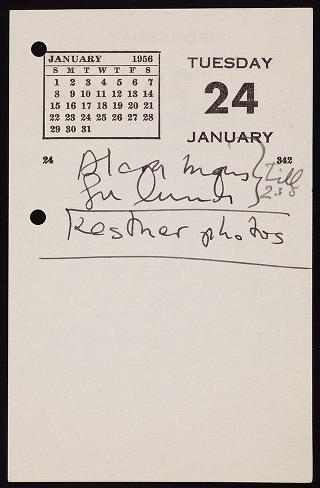 JANUARY 1956
S M T W T F S
1 2 3 4 5 6 7
8 9 10 11 12 13 14
15 16 17 18 19 20 21
22 23 24 25 26 27 28
29 30 31
TUESDAY
24
JANUARY
24
342
for lunch
till
230
Kestner photos